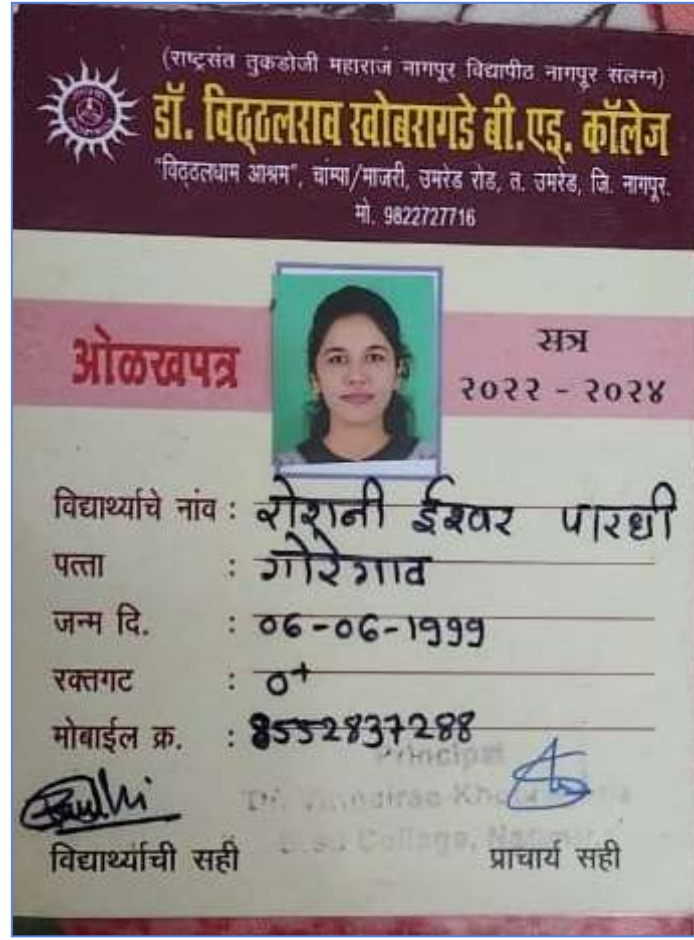 (राष्ट्रसंत तुकडोजी महाराज नागपूर विद्यापीठ नागपूर संलग्न)
डॉ. विठ्ठलराव खोबरागडे बी.एड्. कॉलेज
"विठ्ठलधाम आश्रम", चांम्पा/माजरी, उमरेड रोड, त. उमरेड, जि. नागपूर.
मो. 9822727716
ओळखपत्र
सत्र
२०२२ - २०२४
विद्यार्थ्याचे नांव : रोशनी ईश्वर पारधी
पत्ता : गोरेगाव
जन्म दि. : 06-06-1999
रक्तगट : O+
मोबाईल क्र. : 8552837288
Principal
B.Ed College,
विद्यार्थ्याची सही
प्राचार्य सही